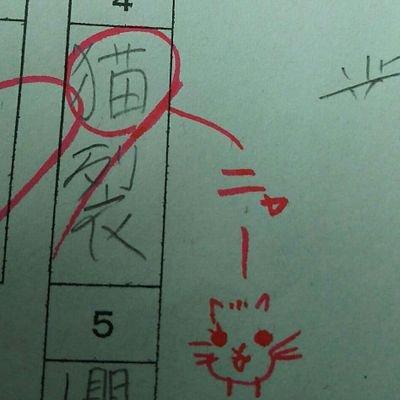 4
猫裂
ニャー
5